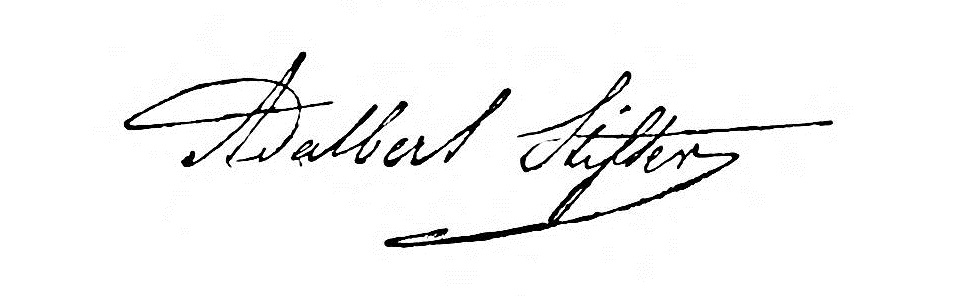 Adalbert Stifter